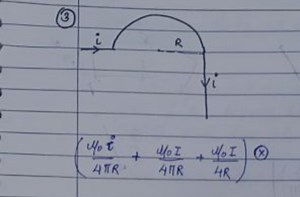 ③
i
R
i
(μ₀i/4πR + μ₀I/4πR + μ₀I/4R) ⊗